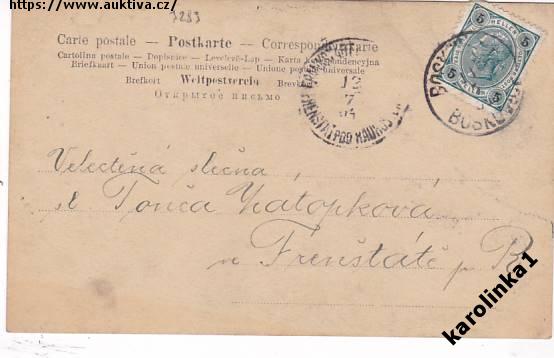 https://www.auktiva.cz/
3293
Carte postale — Postkarte — Correspondenzkarte
Cartolina postale — Dopisnice — Levelező-Lap — Karta korespondencyjna
Briefkaart — Union postale universelle — Unione postale universale
Brefkort — Weltpostverein — Brevkort
Открытое письмо
12
7
04
FRENSTAT POD RADHOŠ
5 HELLER 5
5 5
BOSKO
BOSKO
Velectěná slečna
sl Tonča Zatopková
ve Frenštátě p. R.
karolinka1